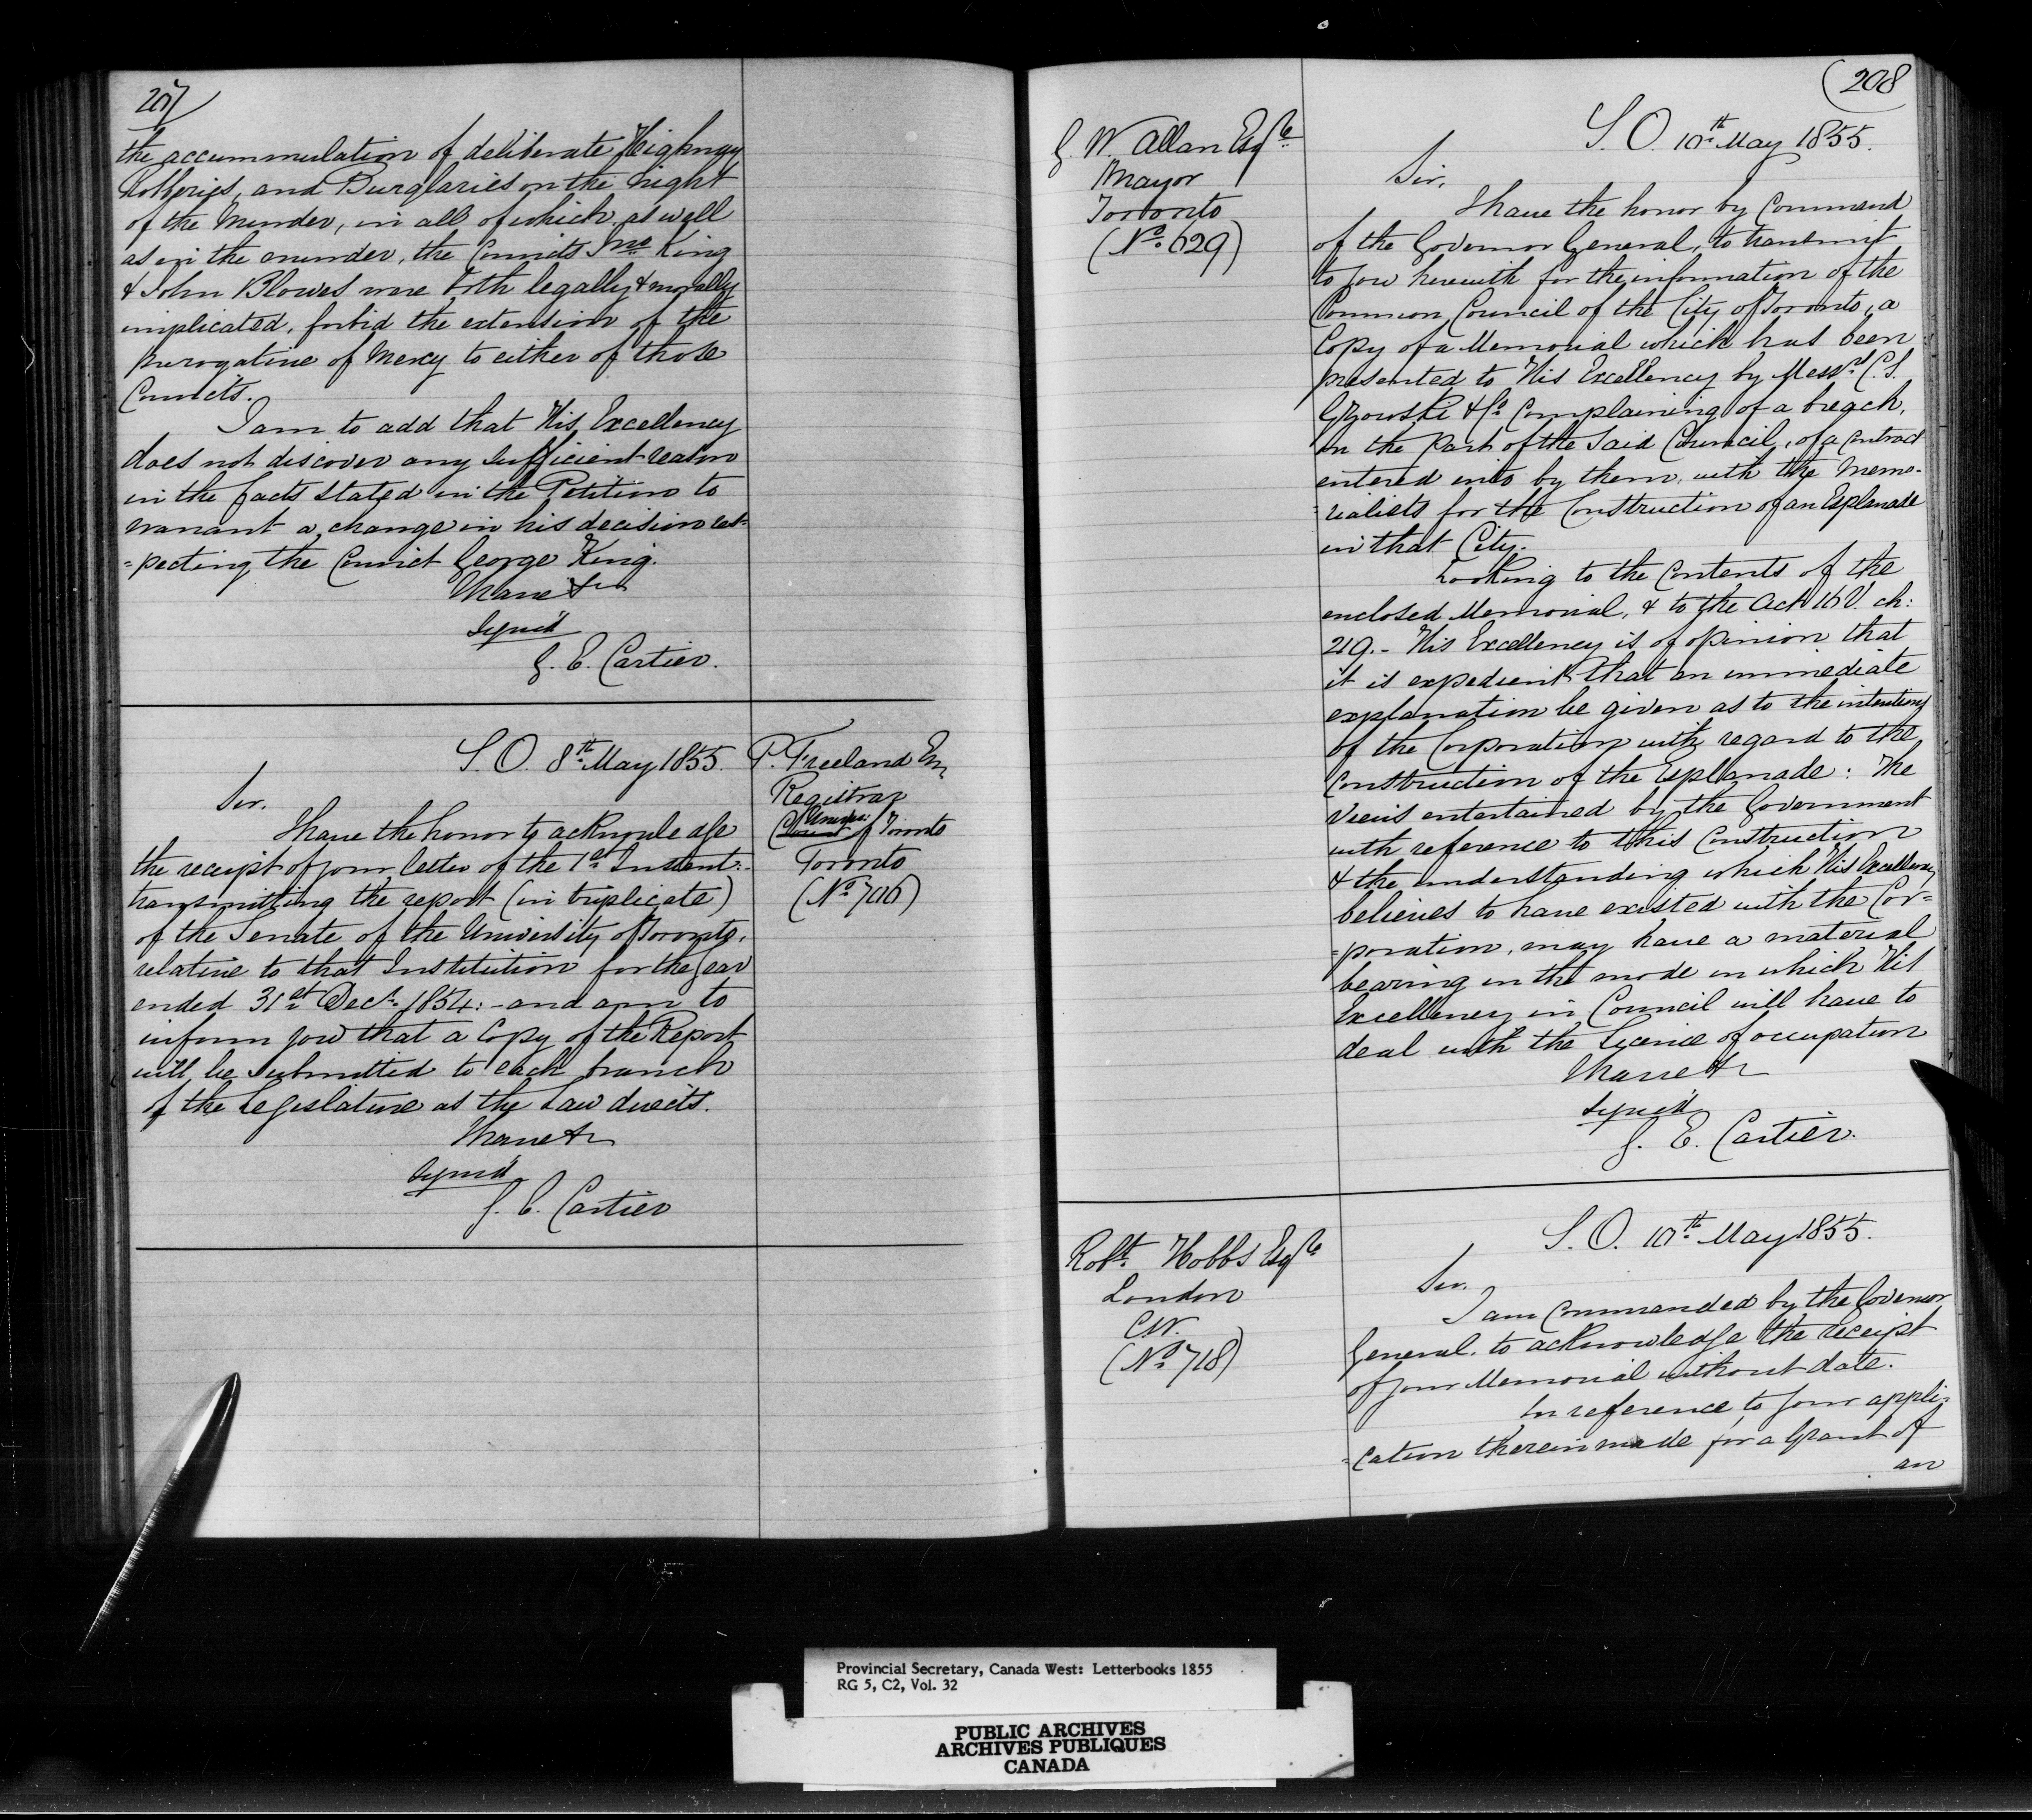 207
the accummulation of deliberate Highway
Robberies, and Burglaries on the night
of the Murder, in all of which, as well
as in the murder, the Convicts King
& John Blowes were both legally & morally
implicated, forbid the extension of the
prerogative of Mercy to either of those
Convicts.
I am to add that His Excellency
does not discover any sufficient reason
in the facts stated in the Petition to
warrant a change in his decision res-
=pecting the Convict George King.
I have &c
Signed
G. E. Cartier.
S. O. 8th May 1855.
P. Freeland Esq
Registrar
Univer:
of Toronto
Toronto
(No 706)
Sir.
I have the honor to acknowledge
the receipt of your letter of the 1st Instant:-
transmitting the report (in triplicate)
of the Senate of the University of Toronto,
relative to that Institution for the year
ended 31st Decr. 1854:- and am to
inform you that a Copy of the Report
will be submitted to each branch
of the Legislature as the Law directs.
I have &c
Signed
G. E. Cartier
208
G. W. Allan Esqre
Mayor
Toronto
(No. 629)
S. O. 10th May 1855.
Sir,
I have the honor by Command
of the Governor General, to transmit
to you herewith for the information of the
Common Council of the City of Toronto, a
Copy of a Memorial which has been
presented to His Excellency by Messrs C. S.
Gzowski & Co Complaining of a breach,
on the part of the said Council, of a Contract
entered into by them, with the Memo-
=rialists for the Construction of an Esplanade
in that City.
Looking to the Contents of the
enclosed Memorial, & to the Act 16 V. ch:
219.- His Excellency is of opinion that
it is expedient that an immediate
explanation be given as to the intentions
of the Corporation with regard to the
Construction of the Esplanade: The
views entertained by the Government
with reference to this Construction
& the understanding which His Excellency
believes to have existed with the Cor=
=poration, may have a material
bearing on the mode in which His
Excellency in Council will have to
deal with the Licence of occupation
I have &c
Signed
G. E. Cartier.
Robt. Hobbs Esqre
London
C.W.
(No. 718)
S. O. 10th May 1855.
Sir.
I am Commanded by the Governor
General. to acknowledge the receipt
of your Memorial without date.
In reference to your appli=
=cation therein made for a Grant of
an
Provincial Secretary, Canada West: Letterbooks 1855
RG 5, C2, Vol. 32
PUBLIC ARCHIVES
ARCHIVES PUBLIQUES
CANADA